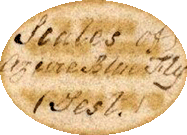 Scales of
Azure Blue Fly
(Test.)